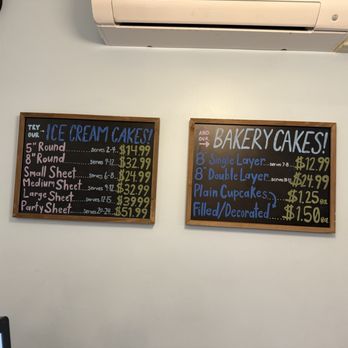 TRY OUR → ICE CREAM CAKES!
5" Round ...... serves 2-4 .. $14.99
8" Round ...... serves 9-12 ... $32.99
Small Sheet .. serves 6-8 .. $24.99
Medium Sheet .. serves 9-12 $32.99
Large Sheet ... serves 12-15 . $39.99
Party Sheet ... serves 20-24 .. $51.99
AND OUR → BAKERY CAKES!
8" Single Layer ... serves 7-8 .. $12.99
8" Double Layer $24.99
Plain Cupcakes $1.25 ea.
Filled/Decorated $1.50 ea.